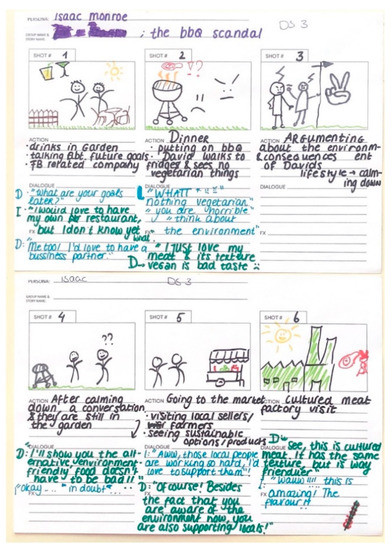 PERSONA: Isaac Monroe
DS 3
GROUP NAME &
STORY NAME
: the bbq scandal
SHOT # 1
SHOT # 2
SHOT # 3
ACTION
· drinks in garden
· talking abt. future goals
· FB related company
ACTION Dinner
· putting on bbq
· David walks to
fridges & sees no
vegetarian things
ACTION Argumenting
about the environm-
& consequences ent
of Davids
lifestyle → calm-
ing down
DIALOGUE
D: "What are your goals
later?"
I: "I would love to have
my own restaurant,
but I don't know yet
what."
D: "Me too! I'd love to have a
bussiness partner"
DIALOGUE
"WHAT!
nothing vegetarian"
"you are horrible
think about
the environment"
"I just love my
meat & its texture
D → vegan is bad taste
DIALOGUE
FX
PERSONA: ISAAC
DS 3
GROUP NAME &
STORY NAME
SHOT # 4
SHOT # 5
SHOT # 6
??
ACTION After calming
down, a conversation
& they are still in
the garden
ACTION Going to the market
· visiting local sellers/
farmers
· seeing sustainable
options/products
ACTION Cultured meat
factory visit
DIALOGUE
D: "I'll show you the alt-
ernative, environment-
friendly food doesn't
have to be bad!!"
"okay..." "in doubt"
DIALOGUE
I: "Aww, those local people
are working so hard, I'd
love to support them"!
D: "Ofcourse! Besides
the fact that you
are aware of the
environment now, you
are also supporting locals!"
DIALOGUE
D: See, this is cultured
meat. It has the same
texture, but is way
kinder"
"Waww!!!! this is
amazing! The
flavour